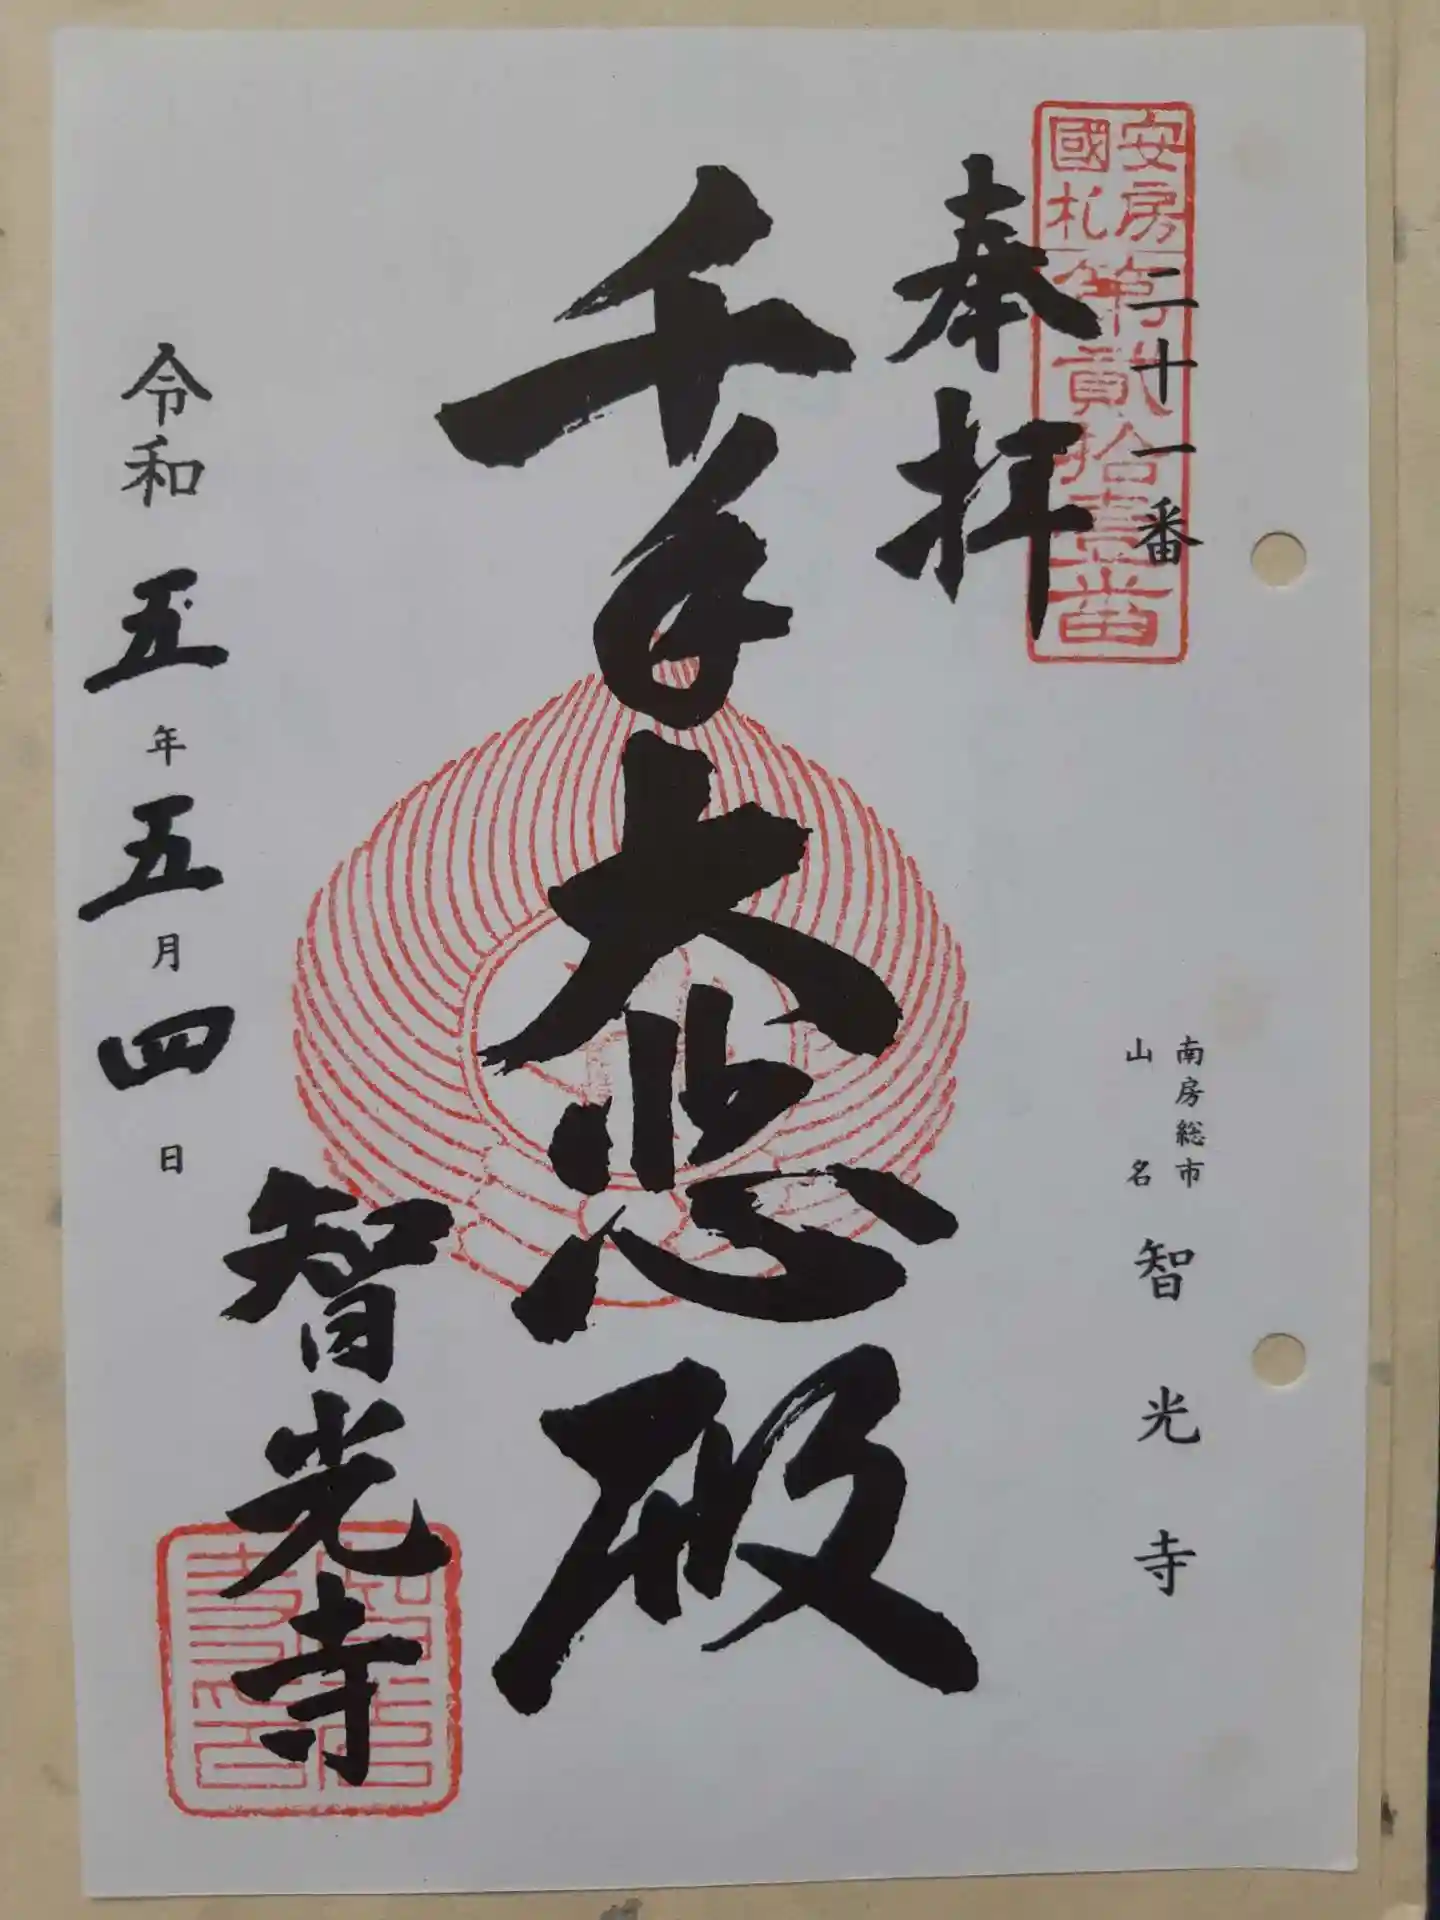 安房
國札
第貳拾壹番
二十一番
南房総市
山名
智光寺
奉拝
千手大悲殿
智光寺
令和五年五月四日